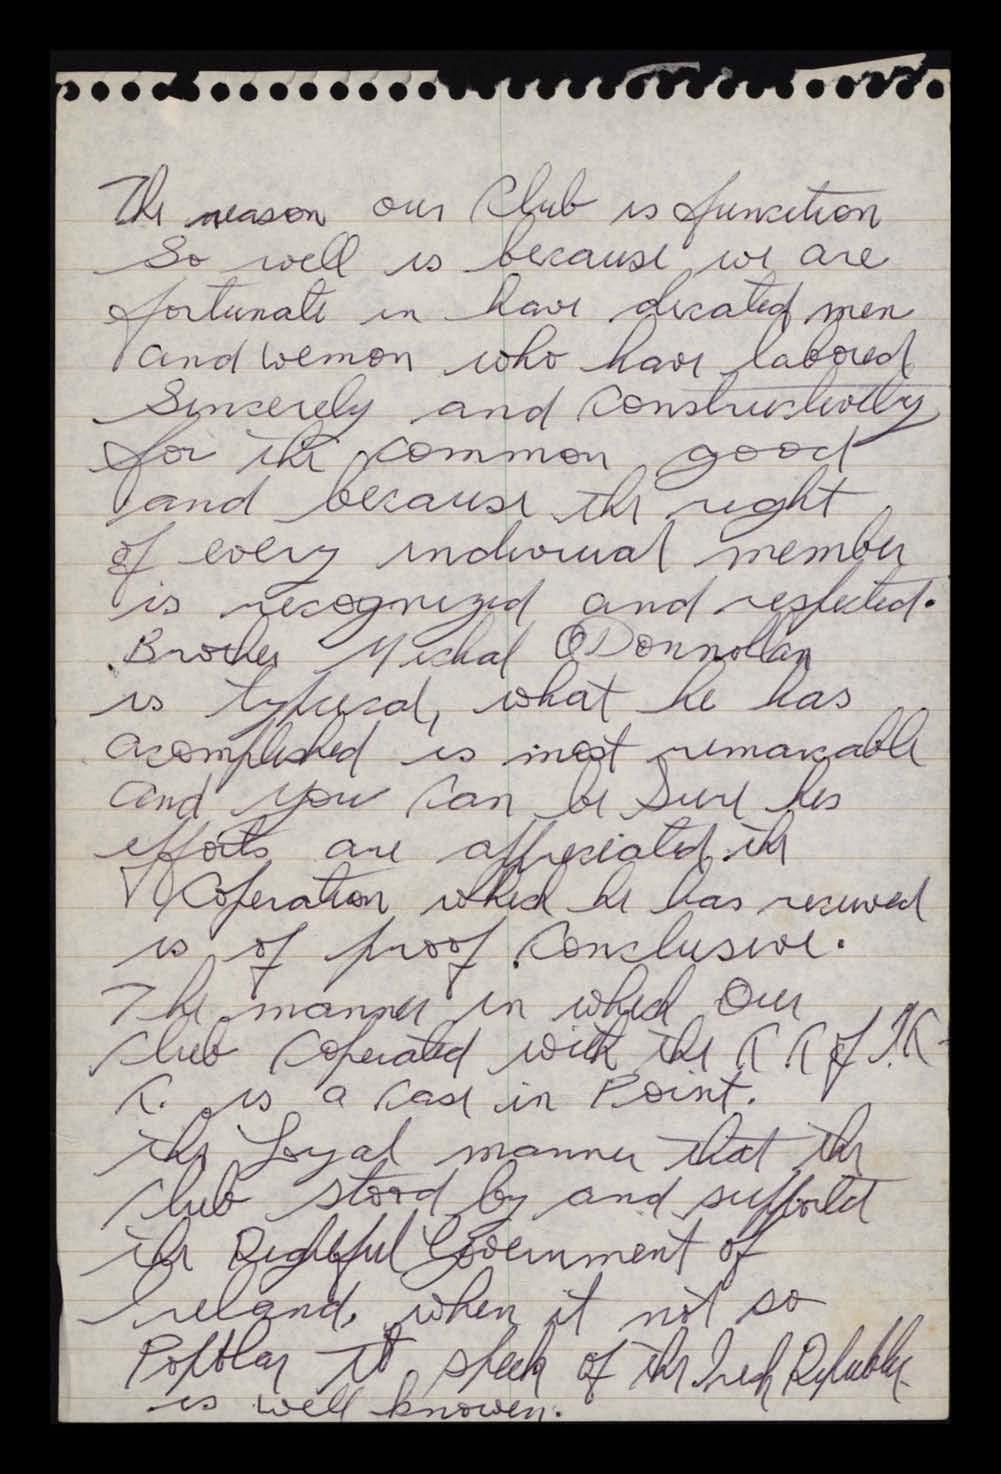 The reason our Club is function
So well is because we are
fortunate in have dicated men
and wemon who have labored
Sincerely and Constructivelly
for the common good
and because the right
of every indivirual member
is recognized and respected.
Brother Michal O'Donnollan
is typical, what he has
acomplished is most remarcable
and you can be Sure his
efforts are appreciated. the
Coperation which he has recieved
is of proof Conclusive.
The manner in which Our
Club Coperated with the
C. is a case in Point.
the Loyal manner that the
Club stood by and supported
the Rightful Government of
Ireland, when it not so
Popolar to speek of the Irish Republic
is well knowen.